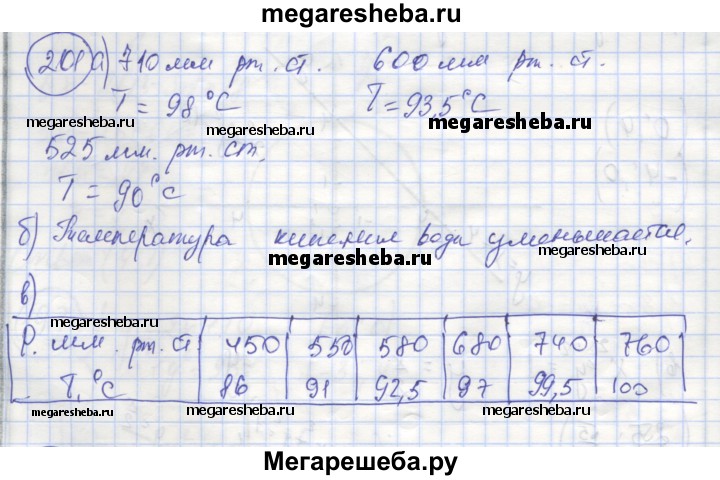 megaresheba.ru
201 а) 710 мм рт. ст. 600 мм рт. ст.
T = 98°C T = 93,5°C
megaresheba.ru megaresheba.ru megaresheba.ru
525 мм. рт. ст.
T = 90°C
б) Температура кипения воды уменьшается.
megaresheba.ru megaresheba.ru
в)
megaresheba.ru megaresheba.ru
P. мм. рт. ст. 450 550 580 680 740 760
T, °C 86 91 92,5 97 99,5 100
megaresheba.ru megaresheba.ru megaresheba.ru
Мегарешеба.ру